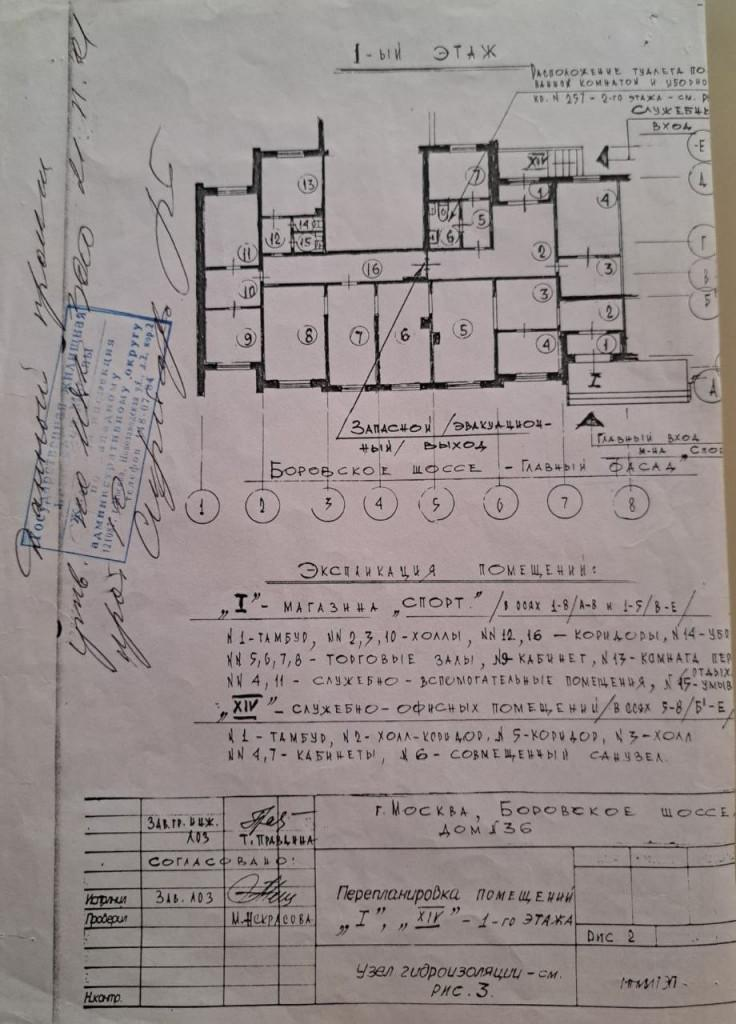 I-ый этаж
Расположение туалета по
ванной комнатой и уборно
кв. N 257 - 2-го этажа - см. р
Служебн
вход
XIV
13
7
1
4
Е
Д
12
14
15
6
5
11
2
3
Г
В
Б
16
10
3
2
9
8
7
6
5
4
1
I
А
Запасной /эвакуацион-
ный/ выход
Главный вход
м-на „Спо
Боровское шоссе - Главный фасад
1 2 3 4 5 6 7 8
Государственная жилищная
инспекция
административному округу
Экспликация помещений:
„I" - магазина „Спорт." /в осях 1-8/А-В и 1-5/В-Е/
N 1 - тамбур, NN 2, 3, 10 - холлы, NN 12, 16 - коридоры, N 14 - убо
NN 5, 6, 7, 8 - торговые залы, N9 кабинет, N 13 - комната пер
отдых
NN 4, 11 - служебно - вспомогательные помещения, N 15 - умыв
„XIV" - служебно - офисных помещений /в осях 5-8/Б'-Е
N 1 - тамбур, N 2 - холл-коридор, N 5 - коридор, N 3 - холл
NN 4, 7 - кабинеты, N 6 - совмещенный санузел.
г. Москва, Боровское шоссе
дом N 36
Зав. гр. инж.
ЛОЗ
Т. Правдина
Согласовано:
Исполнил Зав. ЛОЗ
Проверил М. Некрасова
Перепланировка помещений
„I", „XIV" - 1-го этажа
Рис 2
Узел гидроизоляции - см.
рис. 3.
Н.контр.